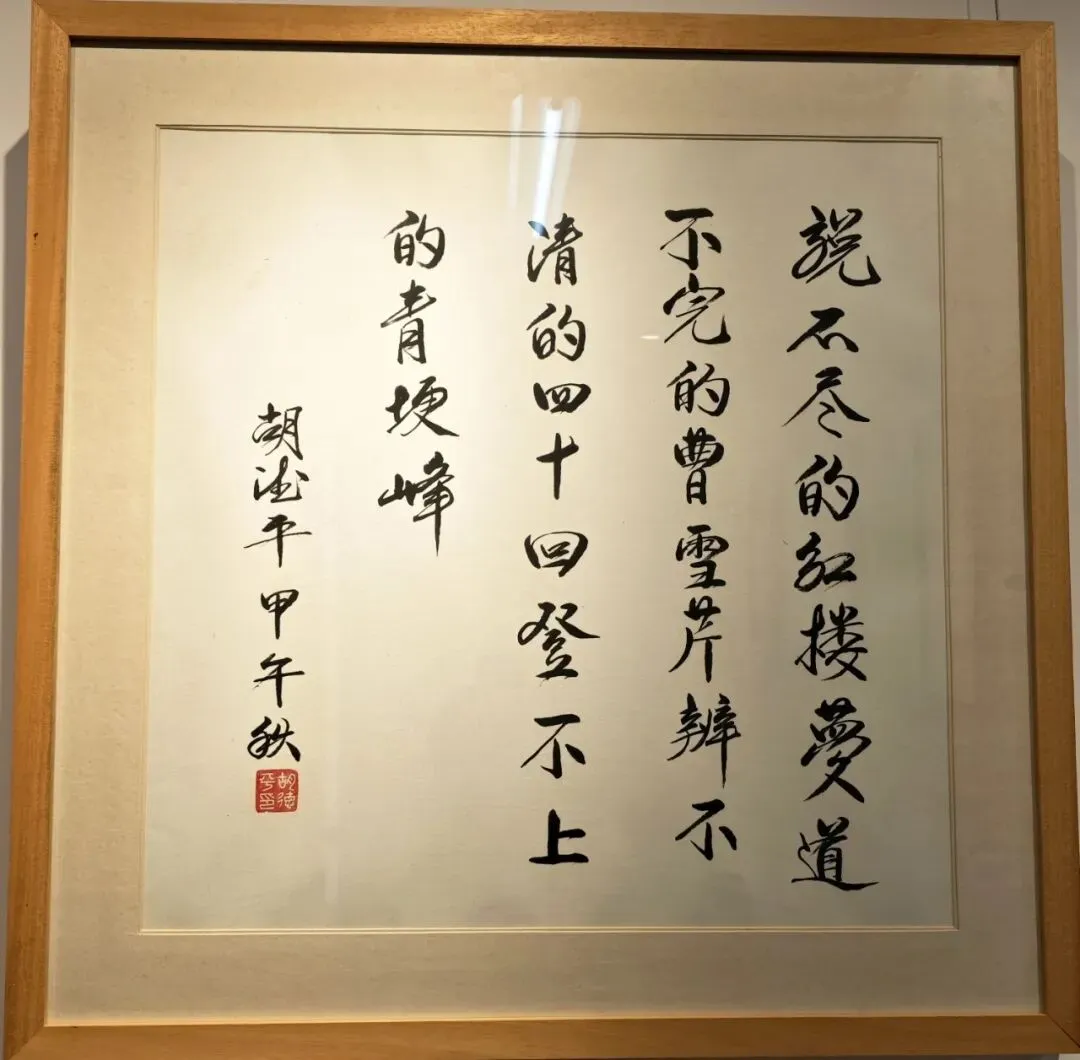 说不尽的红楼夢道
不完的曹雪芹辨不
清的四十回登不上
的青埂峰
胡德平甲午秋
胡德平印